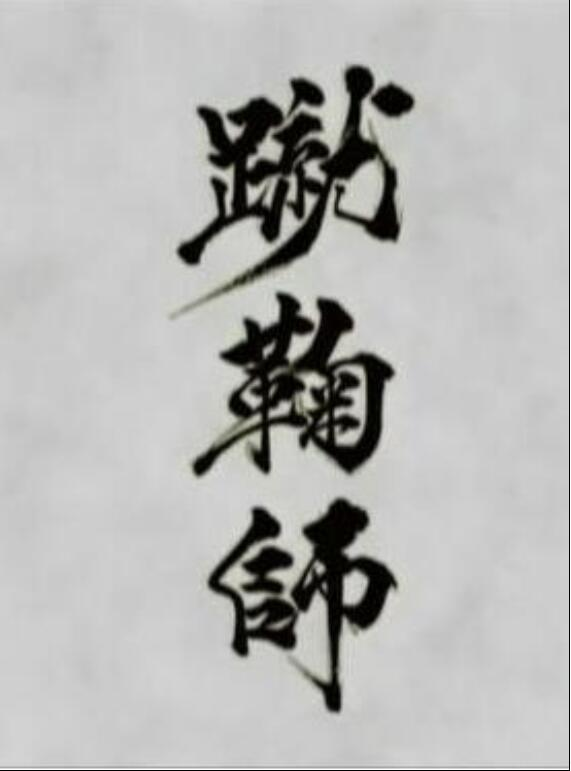 蹴鞠師